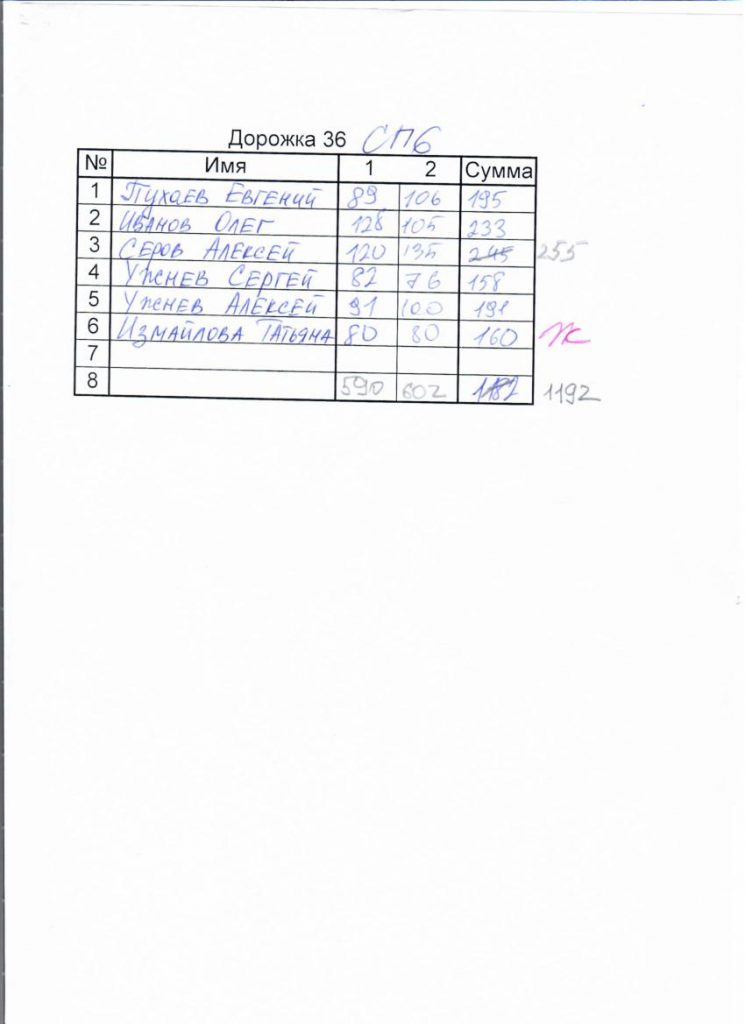 Дорожка 36 СПб
№ Имя 1 2 Сумма
1 Пухаев Евгений 89 106 195
2 Иванов Олег 128 105 233
3 Серов Алексей 120 135 245 255
4 Ужнев Сергей 82 76 158
5 Ужнев Алексей 91 100 191
6 Измайлова Татьяна 80 80 160 Ж
7
8 590 602 1182 1192